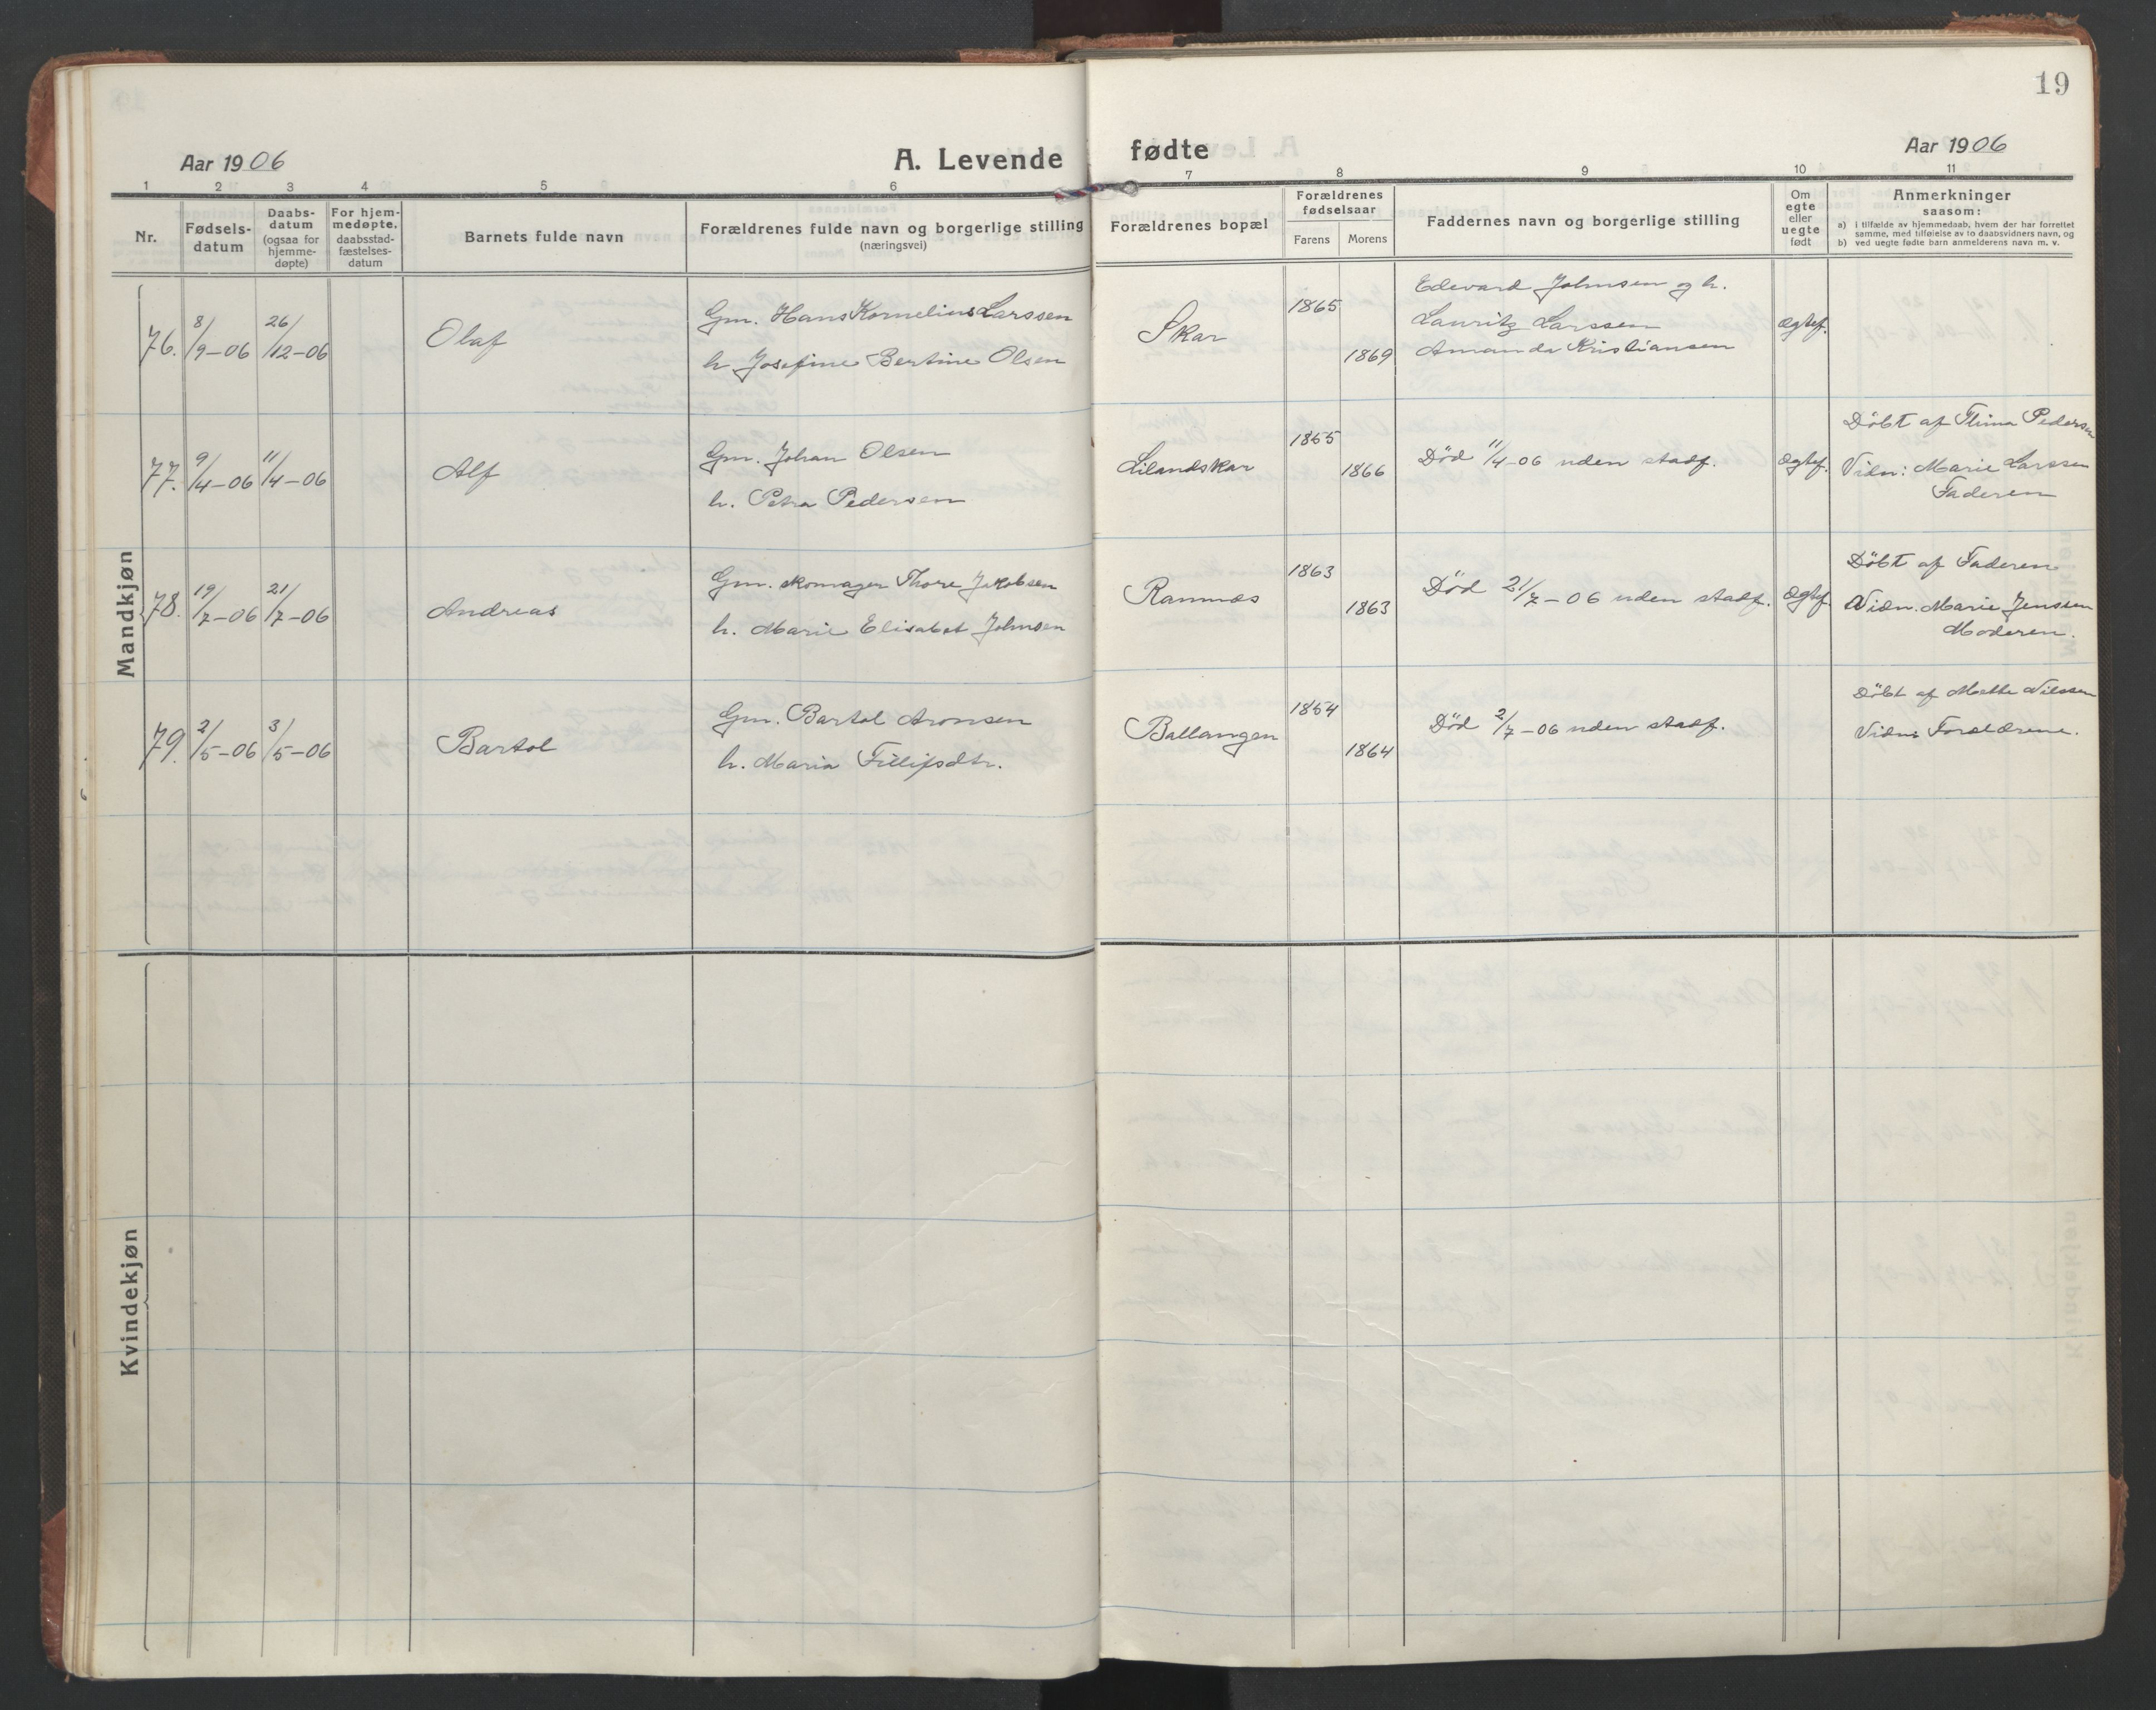 19
Aar 1906
A. Levende fødte
Aar 1906
1 2 3 4 5 6 7 8 9 10 11
Nr.
Fødsels-
datum
Daabs-
datum
(ogsaa for
hjemme-
døpte)
For hjem-
medøpte.
daabsstad-
fæstelses-
datum
Barnets fulde navn
Forældrenes fulde navn og borgerlige stilling
(næringsvei)
Forældrenes bopæl
Forældrenes
fødselsaar
Farens Morens
Faddernes navn og borgerlige stilling
Om
egte
eller
uegte
født
Anmerkninger
saasom:
a) i tilfælde av hjemmedaab, hvem der har forrettet
samme, med tilføielse av to daabsvidners navn, og
b) ved uegte fødte barn anmelderens navn m. v.
Mandkjøn
76. 8/9-06 26/12-06 Olaf
Gm. Hans Kornelius Larssen
h Josefine Bertine Olsen
Skar
1865
1869
Edevard Johnsen og h.
Lauritz Larssen
Amanda Kristiansen
Ægtef.
77. 9/4-06 11/4-06 Alf
Gm. Johan Olsen
h. Petra Pedersen
Lilandskar
1865
1866
Død 11/4-06 uden stadf.
Ægtef.
Döbt af Pedersen
Vidn: Marie Larssen
Faderen
78. 19/7-06 21/7-06 Andreas
Gm. skomager Thore Jakobsen
h. Marie Elisabet Johnsen
Ramnæs
1863
1863
Død 21/7-06 uden stadf.
Ægtef.
Döbt af Faderen
Vidn. Marie Jenssen
Moderen.
79. 2/5-06 3/5-06 Bartol
Gm. Bartol Aronsen
h. Maria Fillipsdtr.
Ballangen
1854
1864
Død 2/7-06 uden stadf.
Döbt af Mette Nilssen
Vidn: Forældrene.
Kvindekjøn